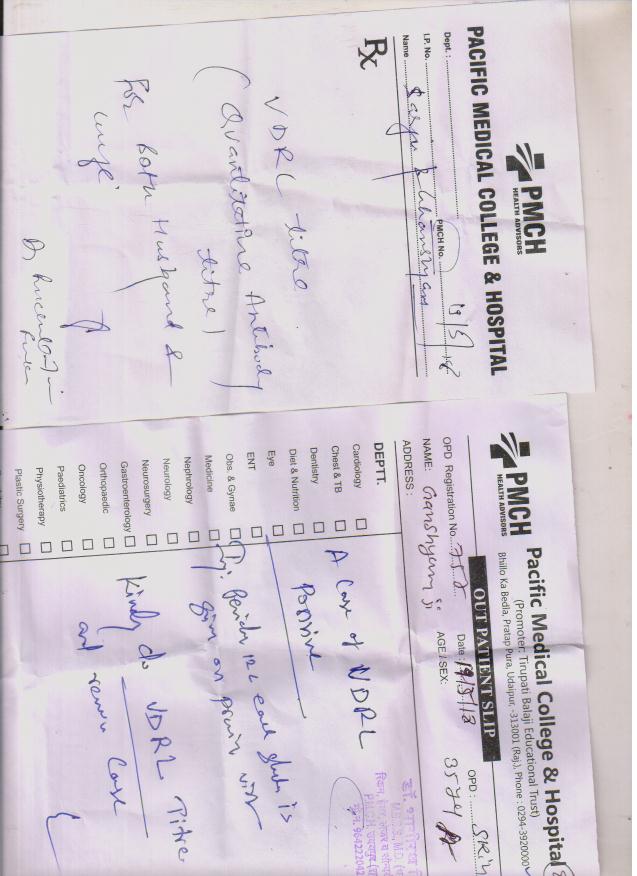 PMCH
HEALTH ADVISORS
PACIFIC MEDICAL COLLEGE & HOSPITAL
Dept. :
I.P. No. PMCH No. 19/5/18
Name
Rx
VDRL titre
(Quantitative Antibody
titre)
For Both Husband &
wife
Dr
PMCH
HEALTH ADVISORS
Pacific Medical College & Hospital
(Promoter: Tirupati Balaji Educational Trust)
Bhillo Ka Bedla, Pratap Pura, Udaipur, -313001 (Raj.), Phone : 0294-3920000
OUT PATIENT SLIP
OPD Registration No. Date : 19/5/18 OPD : Skin
NAME: Ganshyam Ji AGE / SEX: 35 yr
ADDRESS :
DEPTT.
Cardiology
Chest & TB
Dentistry
Diet & Nutrition
Eye
ENT
Obs. & Gynae
Medicine
Nephrology
Neurology
Neurosurgery
Gastroenterology
Orthopaedic
Oncology
Paediatrics
Physiotherapy
Plastic Surgery
A Case of VDRL
Positive
given on
Kindly do VDRL Titre
and review Case